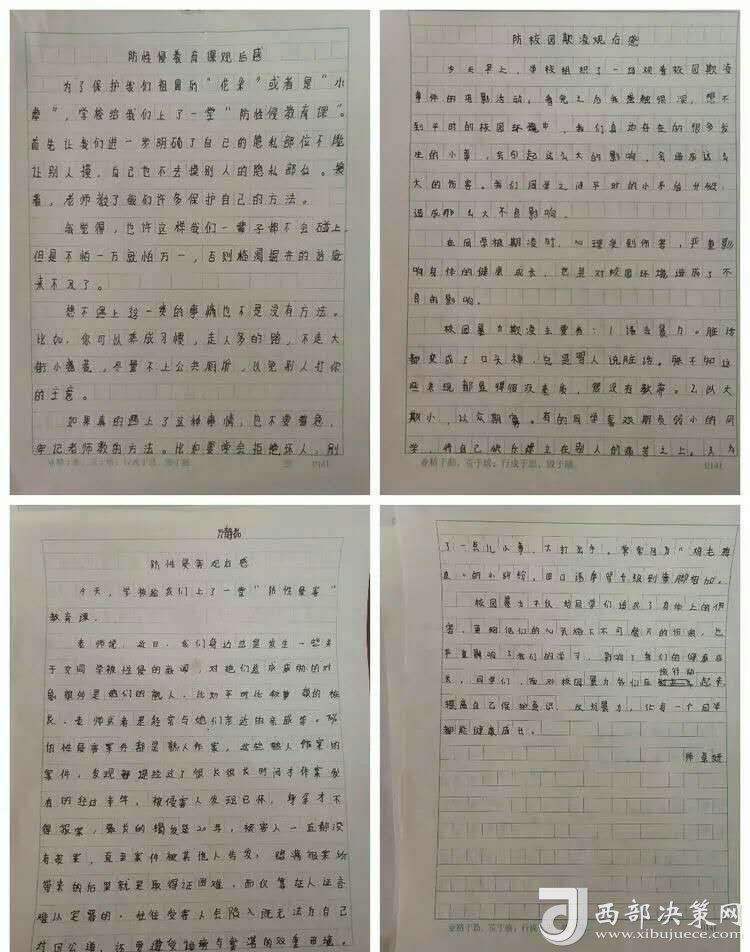 防性侵教育课观后感
为了保护我们祖国的“花朵”或者是“小
”，学校给我们上了一堂“防性侵教育课”。
首先让我们进一步明确了自己的隐私部位不能
让别人摸，自己也不去摸别人的隐私部位。接
着，老师教了我们许多保护自己的方法。
我觉得，也许这样我们一辈子都不会碰上
但是不怕一万就怕一万，否则
来不及了。
想不遇上这一类的事情也不是没有方法。
比如，你可以养成习惯，走人多的路，不走大
街小巷，尽量不上公共厕所，以免别人打你
的主意。
如果真的遇上了这种事情，也不要着急，
牢记老师教的方法。比如要学会拒绝坏人，别
业精于勤，荒于嬉；行成于思，毁于随。
防校园欺凌观后感
今天早上，学校组织了一场观看校园欺凌
事件的电影活动，看完之后我感触很深，想不
到平时的校园环境中，我们身边存在的很多发
生的小事，会引起这么大的影响，会造成这么
大的伤害。我们同学之间平时的小矛盾升级，
造成那么大不良影响。
在同学被欺凌时，心理受到伤害，严重影
响身体的健康成长，也是对校园环境造成了不
良的影响。
校园暴力欺凌主要表：1 语言暴力。脏话
都变成了口头禅，总是骂人说脏话。殊不知这
些表现都显得很没素质，很没有教养。2.以大
欺小，以众欺寡。有的同学喜欢欺负弱小的同
学，将自己快乐建立在别人的痛苦之上。3.为
业精于勤，荒于嬉；行成于思，毁于随。
防性侵害观后感
今天，学校给我们上了一堂“防性侵害”
教育课。
老师说，近日，我们身边总是发生一些关
于女同学被性侵的新闻，对她们造成威胁的对
象很仲是他们的熟人，比如平时比较尊敬的校
长、老师或者是经常与她们亲近的亲戚等。
的性侵害案件都是熟人作案，这些熟人作案的
案件，发现时经过了很长很长时间才作案
有的经过半年，被侵害人发现已怀，身孕才不
得报案，最长的竭发是20年，被害人一直都没
有报案，直至案件被其他人告发，隐满报案所
带来的后果就是取得证困难，而仅靠在人证言
难以定罪的。往往受害人会陷入既无法为自己
讨回公道，还要遭受
了一点儿小事，大打出手。常常因为“鸡毛蒜
皮”的小纠纷，由口语争骂升级到拳脚相加。
校园暴力不仅给同学们造成了身体上的伤
害，更给他们的心灵烙下不可磨灭的伤痕，也
严重影响了我们的学习，影响了我们的健康成
长，同学们，面对校园暴力我们应该行动起来，
提高自己保护意识，反抗暴力，让每一个同学
都能健康成长。
业精于勤，荒于嬉；行成
西部决策网
www.xibujuece.com